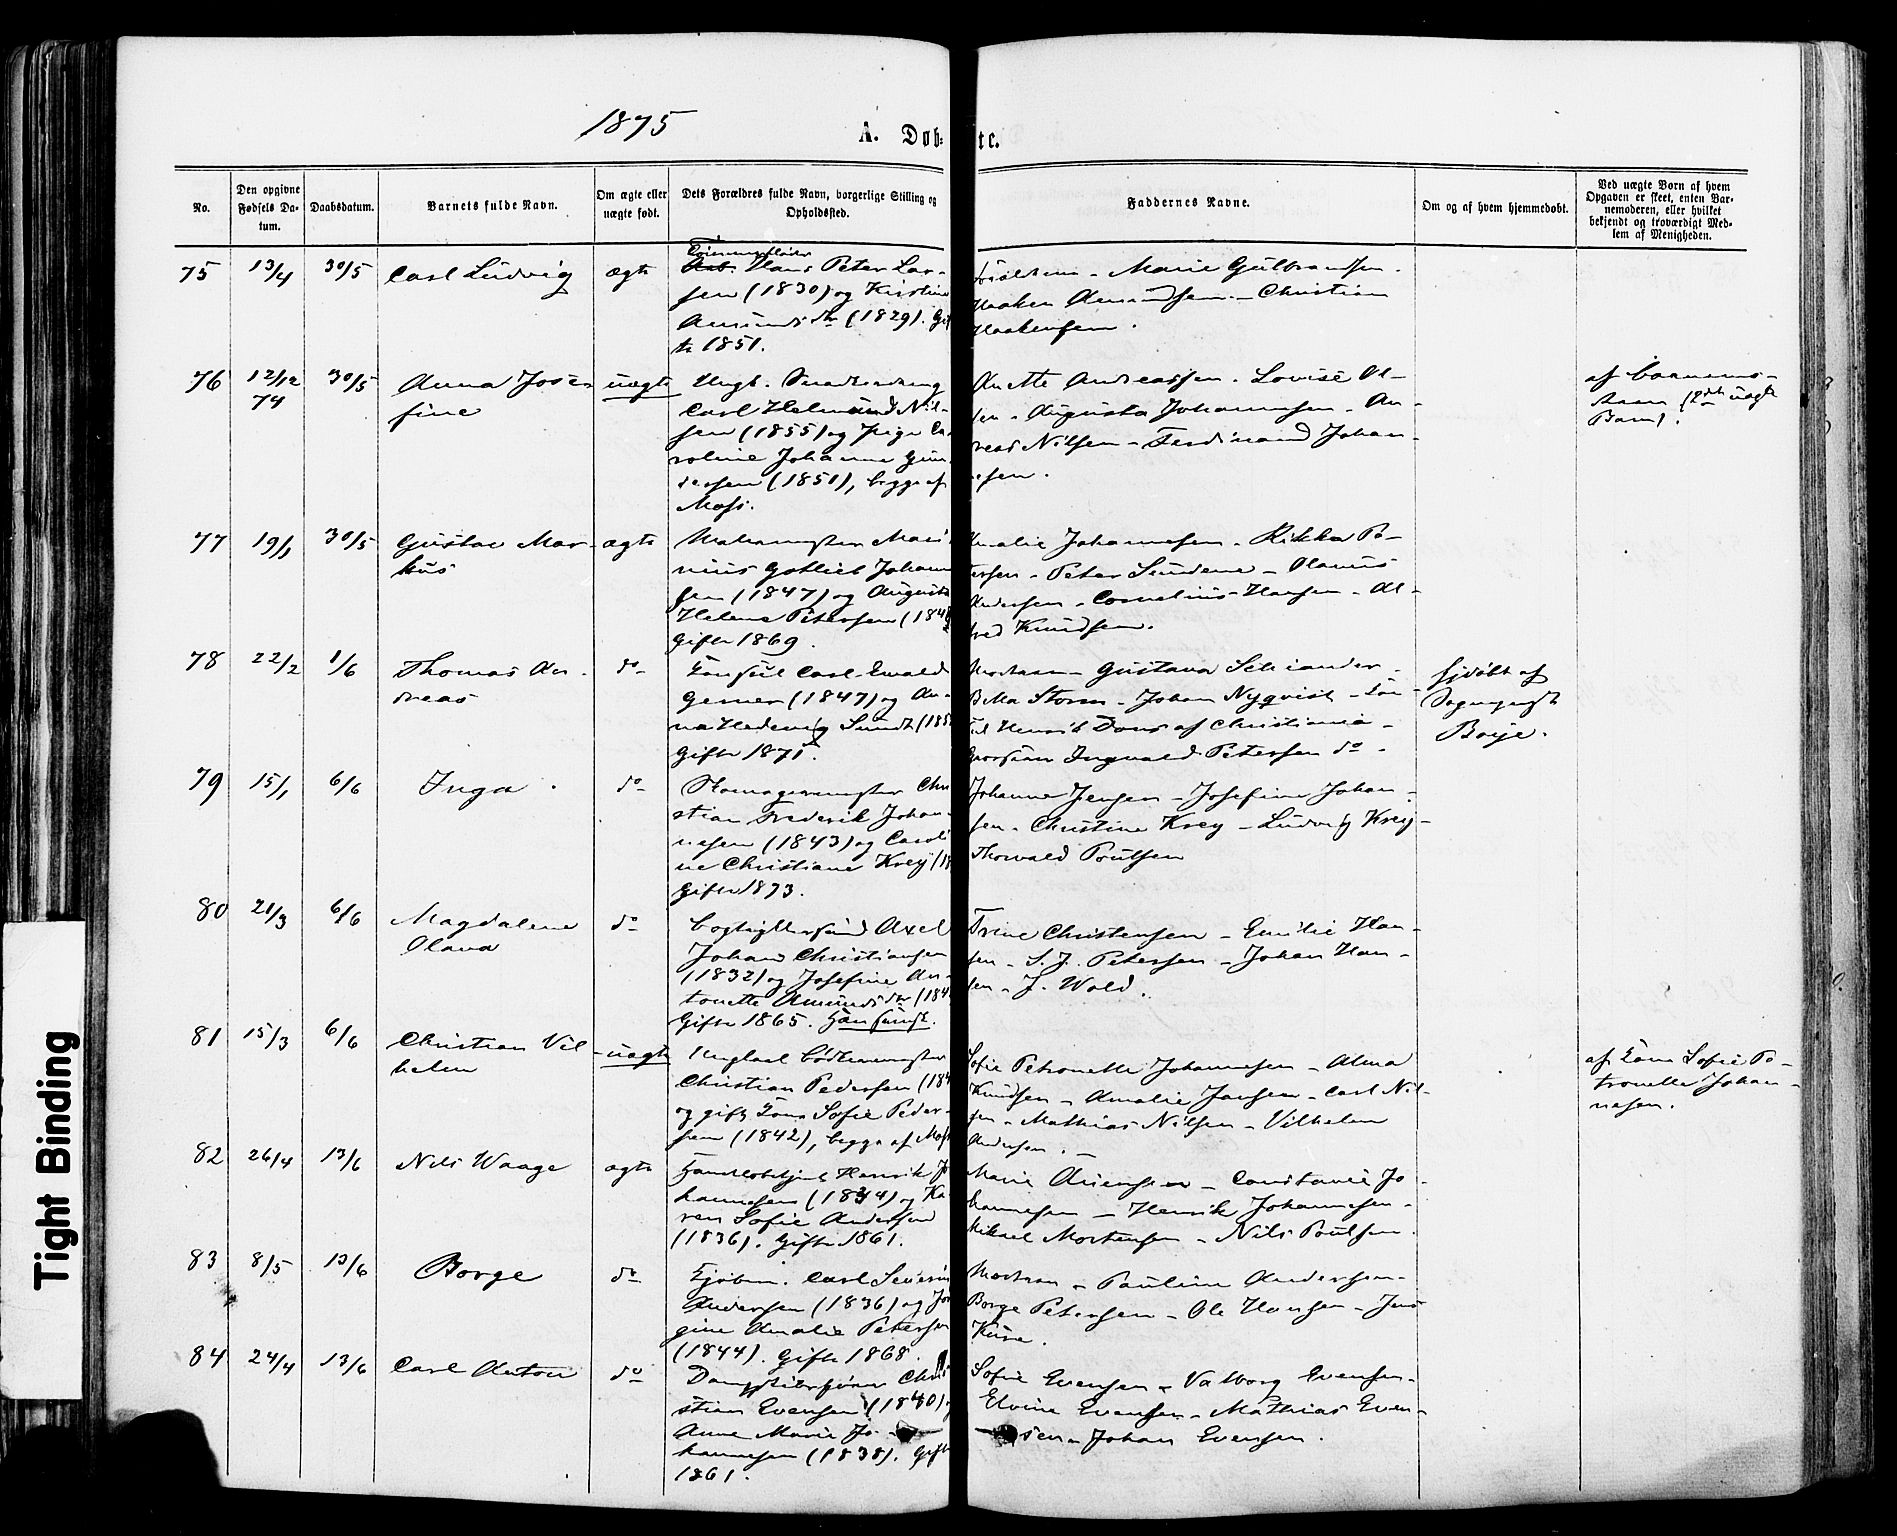 1875
A. Døb-
te.
No.
Den opgivne Fødsels Da-
tum.
Daabsdatum.
Barnets fulde Navn.
Om ægte eller
uægte født.
Dets Forældres fulde Navn, borgerlige Stilling og
Opholdssted.
Faddernes Navne.
Om og af hvem hjemmedøbt.
Ved uægte Børn af hvem
Opgaven er skeet, enten Bar-
nemoderen, eller hvilket
bekjendt og troværdigt Med-
lem af Menigheden.
75 13/4 30/5 Carl Ludvig ægte
Hans Peter Lar-
sen (1830) og Kirstine
Amunds dtr (1829). Gif
te 1851.
Marie Gulbrandsen.
Haaken Amundsen - Christian
Haakensen.
76 12/12 74 30/5 Anna Jose-
fine
uægte
Ungk.
Carl Helmund Nil-
sen (1855) og Pige Ca-
roline Johanne Gun-
dersen (1851), begge af
Moss.
Anette Andreassen. Lovise Ol-
sen - Augusta Johannesen - An-
reas Nilsen - Ferdinand Johan-
esen.
af Barnemo-
(2det uægte
Barn).
77 19/1 30/5 Gustav Mar-
kus
ægte
Malermester Mari
nius Gotlieb Johann
sen (1847) og Augusta
Helene Petersen (184
Gifte 1869.
Amalie Johannesen - Rikka Pe-
tersen - Peter Sundene - Olavus
Andersen - Cornelius Hansen - Al-
fred Knudsen.
78 22/2 1/6 Thomas An-
dreas
do
Konsul Carl Ewald
Gerner (1847) og An-
na Hedevig Sundt (185
Gifte 1871.
Moderen - Gustava
Betta Storm - Johan Nyqvist - Kon-
sul Henrik Dons af Christiania -
Ingvald Petersen do.
hjdøbt af
Sogneprest
Boije.
79 15/1 6/6 Inga. do
Skomagermester Chri
stian Frederik Johan-
nesen (1843) og Caroli
ne Christiane Krey (18
Gifte 1873.
Johanne Jensen - Josefine Johan-
sen - Christine Krey - Ludvig Krey -
Thorvald Poulsen
80 21/3 6/6 Magdalene
Olava
do
Axel
Johan Christiansen
(1832) og Josefine An-
tonette Amunds dtr (184
Gifte 1865.
Trine Christensen - Emilie Han-
sen - S. J. Petersen - Johan Han-
sen - J. Wold.
81 15/3 6/6 Christian Vil-
helm
uægte
Ungkarl Bødkermester
Christian Pedersen (184
og gift Kone Sofie Peder-
sen (1842), begge af Moss
Sofie Petronelle Johannesen - Alma
Knudsen - Amalie Jansen - Carl Nil-
sen - Mathias Nilsen - Vilhelm
Andersen.
af Kone Sofie Pe-
tronelle Johan-
nesen.
82 26/4 13/6 Nils Waage ægte
Henrik Jo
hannesen (1834) og Ka-
ren Sofie Andersen
(1836). Gifte 1861.
Marie - Constance Jo-
hannesen - Henrik Johannesen -
Mikael Mortensen - Nils Poulsen.
83 8/5 13/6 Borge do
Kjøbm. Carl Severin
Andersen (1836) og Jør
gine Amalie Petersen
(1844). Gifte 1868.
Moderen - Pauline Andersen -
Borge Petersen - Ole Hansen - Jens
84 24/4 13/6 Carl Anton do
Chri
stian Evensen (1840) o
Anne Marie Jo-
hannesen (1838). Gifte
1861.
Sofie Evensen - Valborg Evensen -
Elvine Evensen - Mathias Even-
sen - Johan Evensen.
Tight Binding